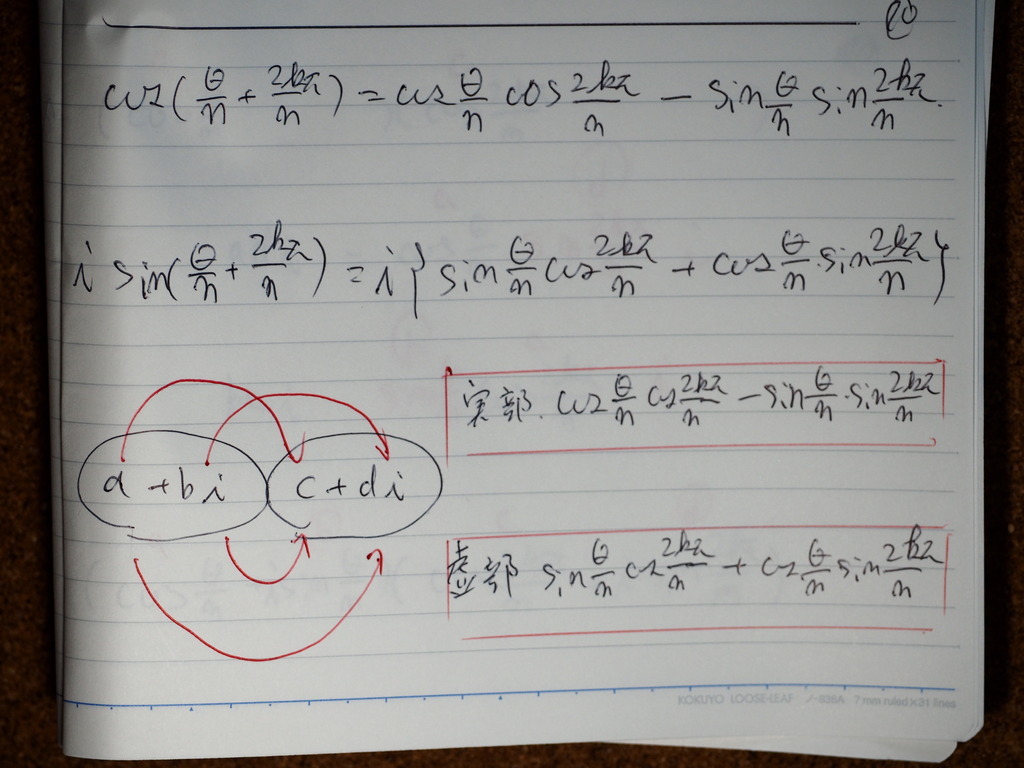 cos(θ/n + 2kπ/n) = cos θ/n cos 2kπ/n − sin θ/n sin 2kπ/n.
i sin(θ/n + 2kπ/n) = i{sin θ/n cos 2kπ/n + cos θ/n · sin 2kπ/n}
実部. cos θ/n cos 2kπ/n − sin θ/n · sin 2kπ/n
a + bi c + di
虚部 sin θ/n cos 2kπ/n + cos θ/n sin 2kπ/n
KOKUYO LOOSE-LEAF ノ-836A 7mm ruled×31 lines